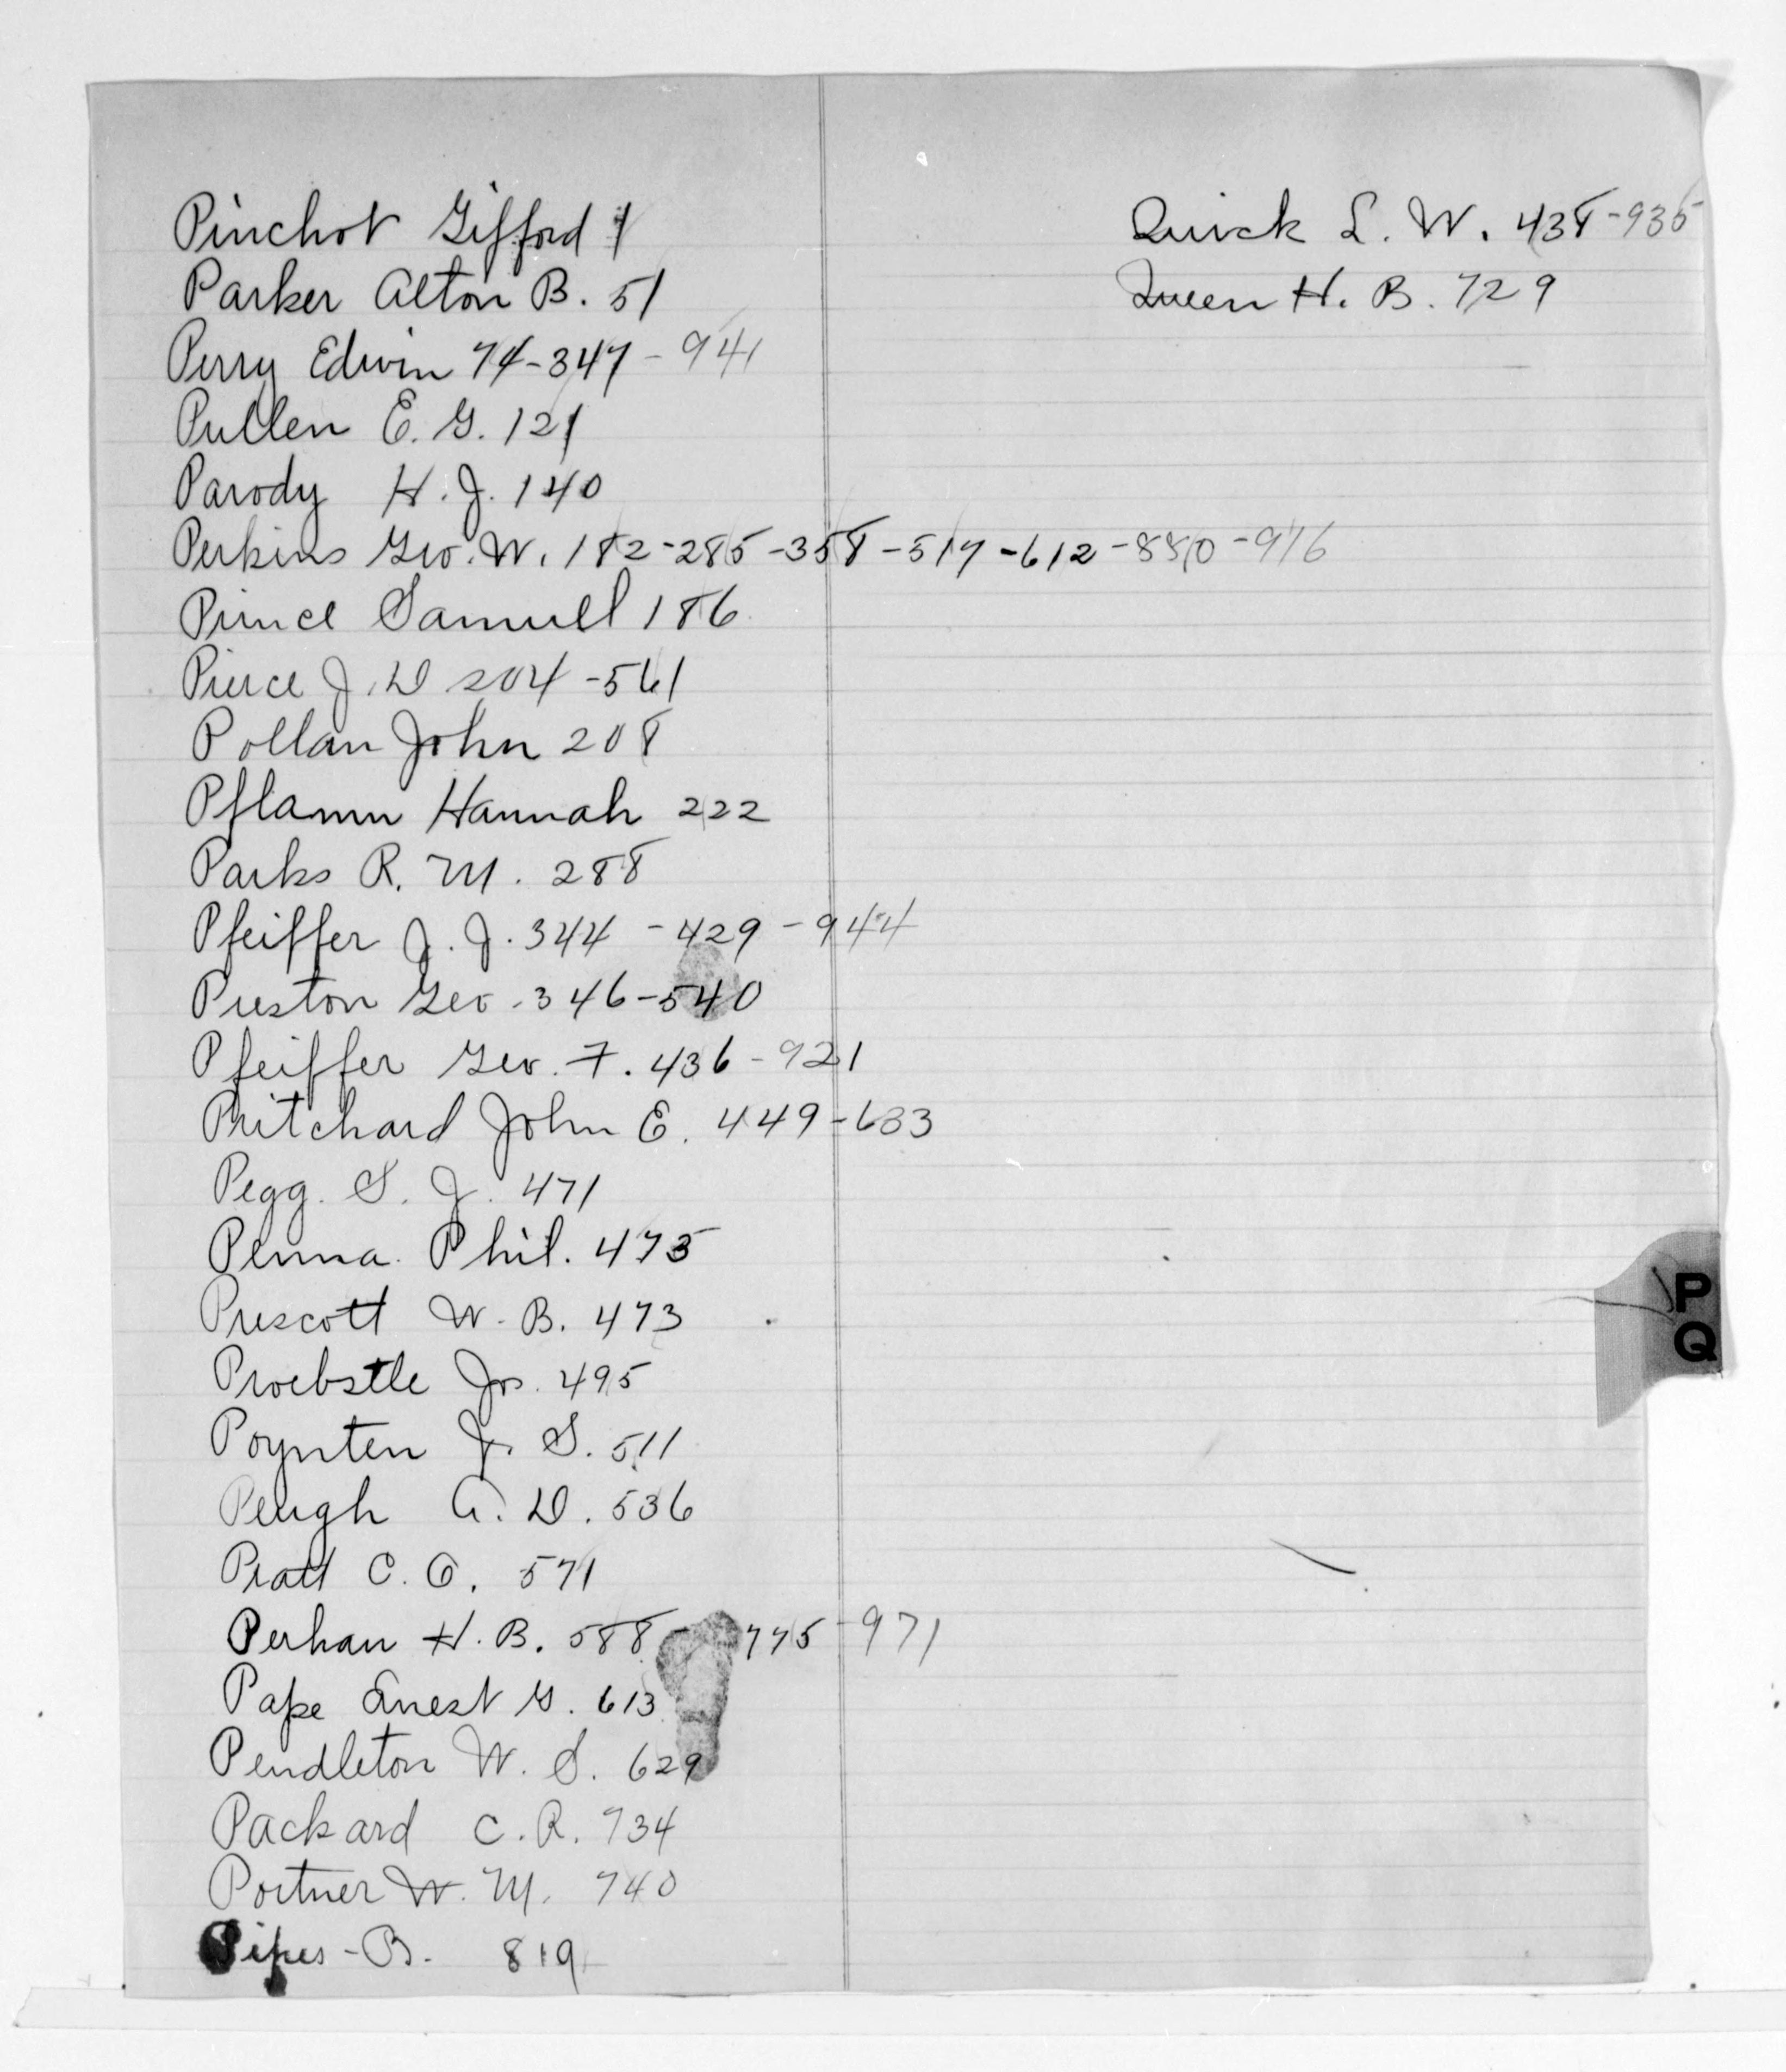 Pinchot Gifford 1
Parker Alton B. 51
Perry Edwin 74-347-941
Pullen E. G. 121
Parody H. J. 140
Perkins Geo. W. 182-285-358-517-612-880-916
Prince Samuel 186
Pierce J. D 204-561
Pollan John 208
Pflamm Hannah 222
Parks R. M. 288
Pfeiffer J. J. 344-429-944
Preston Geo. 346-540
Pfeiffer Geo. F. 436-921
Pritchard John E. 449-633
Pegg. S. J. 471
Penna. Phil. 473
Prescott W. B. 473
Proebstle Jos. 495
Poynten J. S. 511
Peugh A. D. 536
Pratt C. O. 571
Perhan H. B. 588-775-971
Pape Ernest G. 613
Pendleton W. S. 629
Packard C. R. 734
Portner W. M. 740
Pipes - B. 819
Quick L. W. 438-935
Queen H. B. 729
P
Q